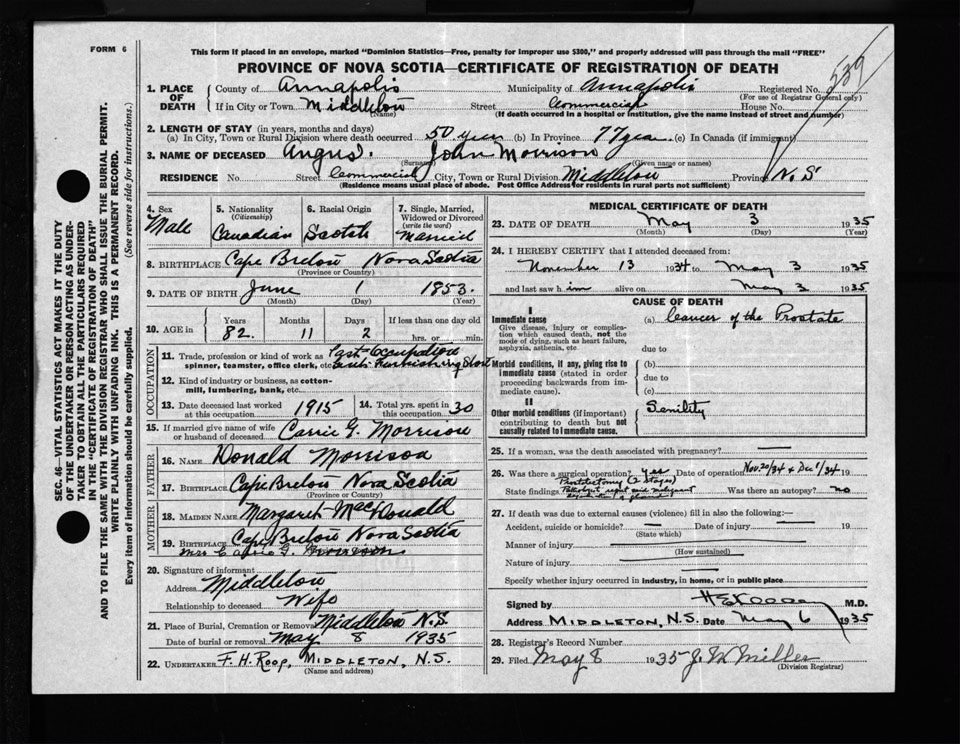 FORM 6
This form if placed in an envelope, marked "Dominion Statistics—Free, penalty for improper use $300," and properly addressed will pass through the mail "FREE"
PROVINCE OF NOVA SCOTIA—CERTIFICATE OF REGISTRATION OF DEATH
539
1. PLACE OF DEATH County of Annapolis Municipality of Annapolis Registered No.
(For use of Registrar General only)
If in City or Town Middleton Street Commercial House No.
(Name) (If death occurred in a hospital or institution, give the name instead of street and number)
2. LENGTH OF STAY (in years, months and days)
(a) In City, Town or Rural Division where death occurred 50 years (b) In Province 77 years (c) In Canada (if immigrant)
3. NAME OF DECEASED Angus. John Morrison
(Surname) (Given name or names)
RESIDENCE No. Street Commercial City, Town or Rural Division Middleton Province N.S.
(Residence means usual place of abode. Post Office Address for residents in rural parts not sufficient)
4. Sex
Male
5. Nationality
(Citizenship)
Canadian
6. Racial Origin
Scotch
7. Single, Married, Widowed or Divorced
(write the word)
Married
8. BIRTHPLACE Cape Breton Nova Scotia
(Province or Country)
9. DATE OF BIRTH June 1 1853.
(Month) (Day) (Year)
10. AGE in Years Months Days If less than one day old
82. 11 2 hrs. or min.
OCCUPATION
11. Trade, profession or kind of work as spinner, teamster, office clerk, etc. Past Occupation
Furnishing Store
12. Kind of industry or business, as cotton-mill, lumbering, bank, etc.
13. Date deceased last worked at this occupation 1915
14. Total yrs. spent in this occupation 30
15. If married give name of wife or husband of deceased Carrie G. Morrison
FATHER
16. NAME Donald Morrison
17. BIRTHPLACE Cape Breton Nova Scotia
(Province or Country)
MOTHER
18. MAIDEN NAME Margaret MacDonald
19. BIRTHPLACE Cape Breton Nova Scotia
Mrs Carrie G. Morrison
20. Signature of informant
Address Middleton
Relationship to deceased Wife
21. Place of Burial, Cremation or Removal Middleton N.S.
Date of burial or removal May 8 1935
22. UNDERTAKER F. H. Roop, MIDDLETON, N.S.
(Name and address)
MEDICAL CERTIFICATE OF DEATH
23. DATE OF DEATH May 3 1935
(Month) (Day) (Year)
24. I HEREBY CERTIFY that I attended deceased from:
November 13 1934 to May 3 1935
and last saw him alive on May 3 1935
CAUSE OF DEATH
I
Immediate cause (a) Cancer of the Prostate
Give disease, injury or complication which caused death, not the mode of dying, such as heart failure, asphyxia, asthenia, etc.
due to
Morbid conditions, if any, giving rise to immediate cause (stated in order proceeding backwards from immediate cause).
(b)
due to
(c)
II
Other morbid conditions (if important) contributing to death but not causally related to immediate cause.
Senility
25. If a woman, was the death associated with pregnancy? —
26. Was there a surgical operation? yes Date of operation Nov. 20/34 & Dec 1/34 19
Prostatectomy (2 stages)
State findings Was there an autopsy? no
27. If death was due to external causes (violence) fill in also the following:—
Accident, suicide or homicide? — Date of injury — 19
(State which)
Manner of injury
(How sustained)
Nature of injury
Specify whether injury occurred in industry, in home, or in public place
Signed by M.D.
Address MIDDLETON, N.S. Date May 6 1935
28. Registrar's Record Number
29. Filed May 8 1935 J. W. Miller
(Division Registrar)
SEC. 46—VITAL STATISTICS ACT MAKES IT THE DUTY
OF THE UNDERTAKER OR PERSON ACTING AS UNDER-
TAKER TO OBTAIN ALL THE PARTICULARS REQUIRED
IN THE "CERTIFICATE OF REGISTRATION OF DEATH"
AND TO FILE THE SAME WITH THE DIVISION REGISTRAR WHO SHALL ISSUE THE BURIAL PERMIT.
WRITE PLAINLY WITH UNFADING INK. THIS IS A PERMANENT RECORD.
Every item of information should be carefully supplied. (See reverse side for instructions.)